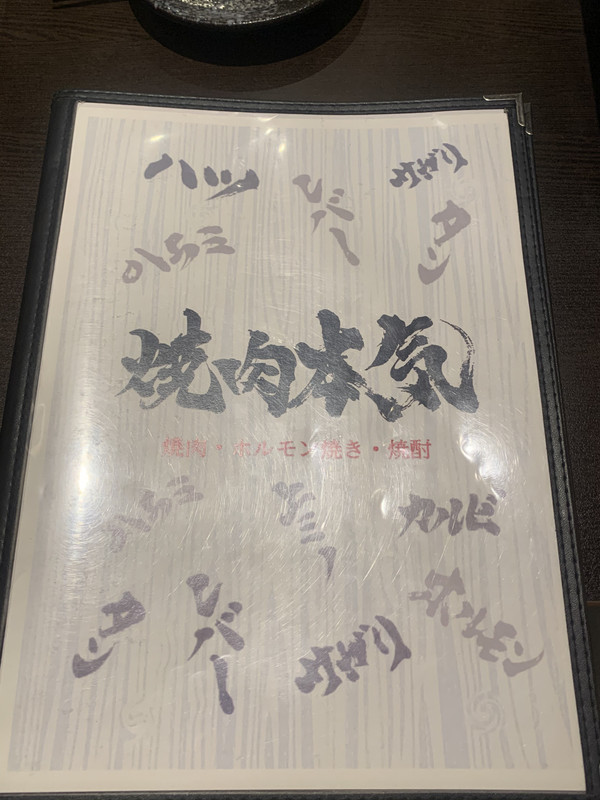 ハツ
レバー
みすじ
ハラミ
タン
焼肉本気
焼肉・ホルモン焼き・焼酎
ハラミ
カルビ
タン
レバー
ホルモン